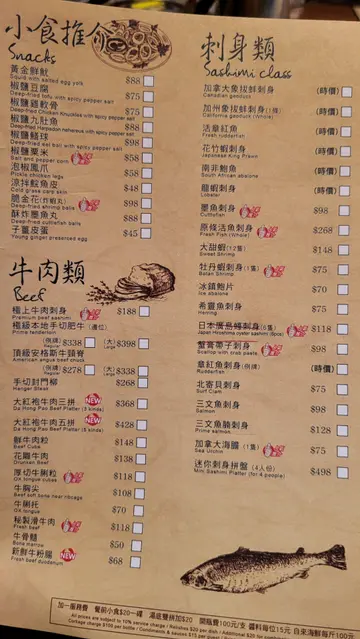 小食推介
Snacks
黃金鮮魷 $88
Squid with salted egg yolk
椒鹽豆腐 $75
Deep-fried tofu with spicy pepper salt
椒鹽雞軟骨 $75
Deep-fried Chicken Knuckles with spicy pepper salt
椒鹽九肚魚 $88
椒鹽鱔球 $98
Deep-fried eel ball with spicy pepper salt
椒鹽粟米 $58
Salt and pepper corn
泡椒鳳爪 $58
Pickle chicken legs
涼拌鮫魚皮 $48
Cold grass carp skin
脆金花(炸蝦丸) $98
Deep-fried shrimp balls
酥炸墨魚丸 $88
Deep-fried cuttlefish balls
子薑皮蛋 $45
Young ginger preserved egg
牛肉類
Beef
極上牛肉刺身 $188
Premium beef sashimi
極級本地手切肥牛(產位)
Prime tenderloin
(例牌) $338 (大) $398
頂級安格斯牛頸脊
American angus beef chuck
(例牌) $278 (大) $338
手切封門柳 $268
Hanger Steak
大紅袍牛肉三拼 NEW $368
Da Hong Pao Beef Platter (3 kinds)
大紅袍牛肉五拼 NEW $428
Da Hong Pao Beef Platter (5 kinds)
鮮牛肉粒 $148
Beef Cube
花雕牛肉 $138
Drunken Beef
厚切牛脷粒 $118
Ox tongue cubes
牛胸尖 $108
Beef soft bone near ribcage
牛脷托 $70
Ox tongue
秘製滑牛肉 $118
Fresh beef
牛骨髓 $50
Bone marrow
新鮮牛粉腸 NEW $68
Fresh beef duodenum
刺身類
Sashimi class
加拿大象拔蚌刺身 (時價)
Canadian geoduck
加州象拔蚌刺身(1條) (時價)
California geoduck (Whole)
活章紅魚 (時價)
Fresh rudderfish
花竹蝦刺身 (時價)
Japanese King Prawn
南非鮑魚 (時價)
South African abalone
龍蝦刺身 (時價)
Lobster
墨魚刺身 $98
Cuttlefish
原條活魚刺身 $268
Fresh Fish (Whole)
大甜蝦(12隻) $148
Sweet Shrimp
牡丹蝦刺身(1隻) $75
Botan Shrimp
冰鎮鮑片 $70
Ice abalone
希靈魚刺身 $75
Herring
日本廣島蠔刺身(6隻) $118
Japan Hiroshima oyster sashimi (6pcs)
蟹膏帶子刺身 $98
Scallop with crab paste
章紅魚刺身(例牌) (時價)
Rudderfish
北寄貝刺身 $75
Surf Clam
三文魚刺身 $98
Salmon
三文魚腩刺身 $128
Prime salmon
加拿大海膽(1隻) $75
Sea Urchin
迷你刺身拼盤(4人份) $498
Mini Sashimi Platter (for 4 people)
加一服務費 餐前小食$20一碟 湯底雙拼加$20 開瓶費100元/支 醬料每位15元